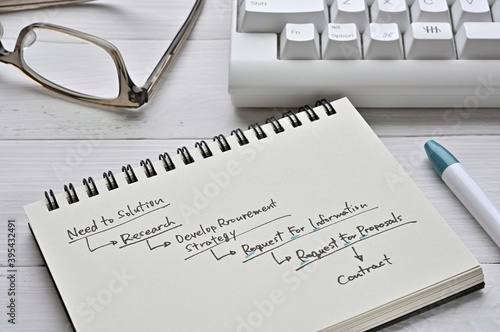 Shift
Fn
alt
option
Z
X
C
V
Need to Solution
Research
Develop Prourement
Strategy
Request For Information
Request For Proposals
Contract
Adobe Stock | #395432491